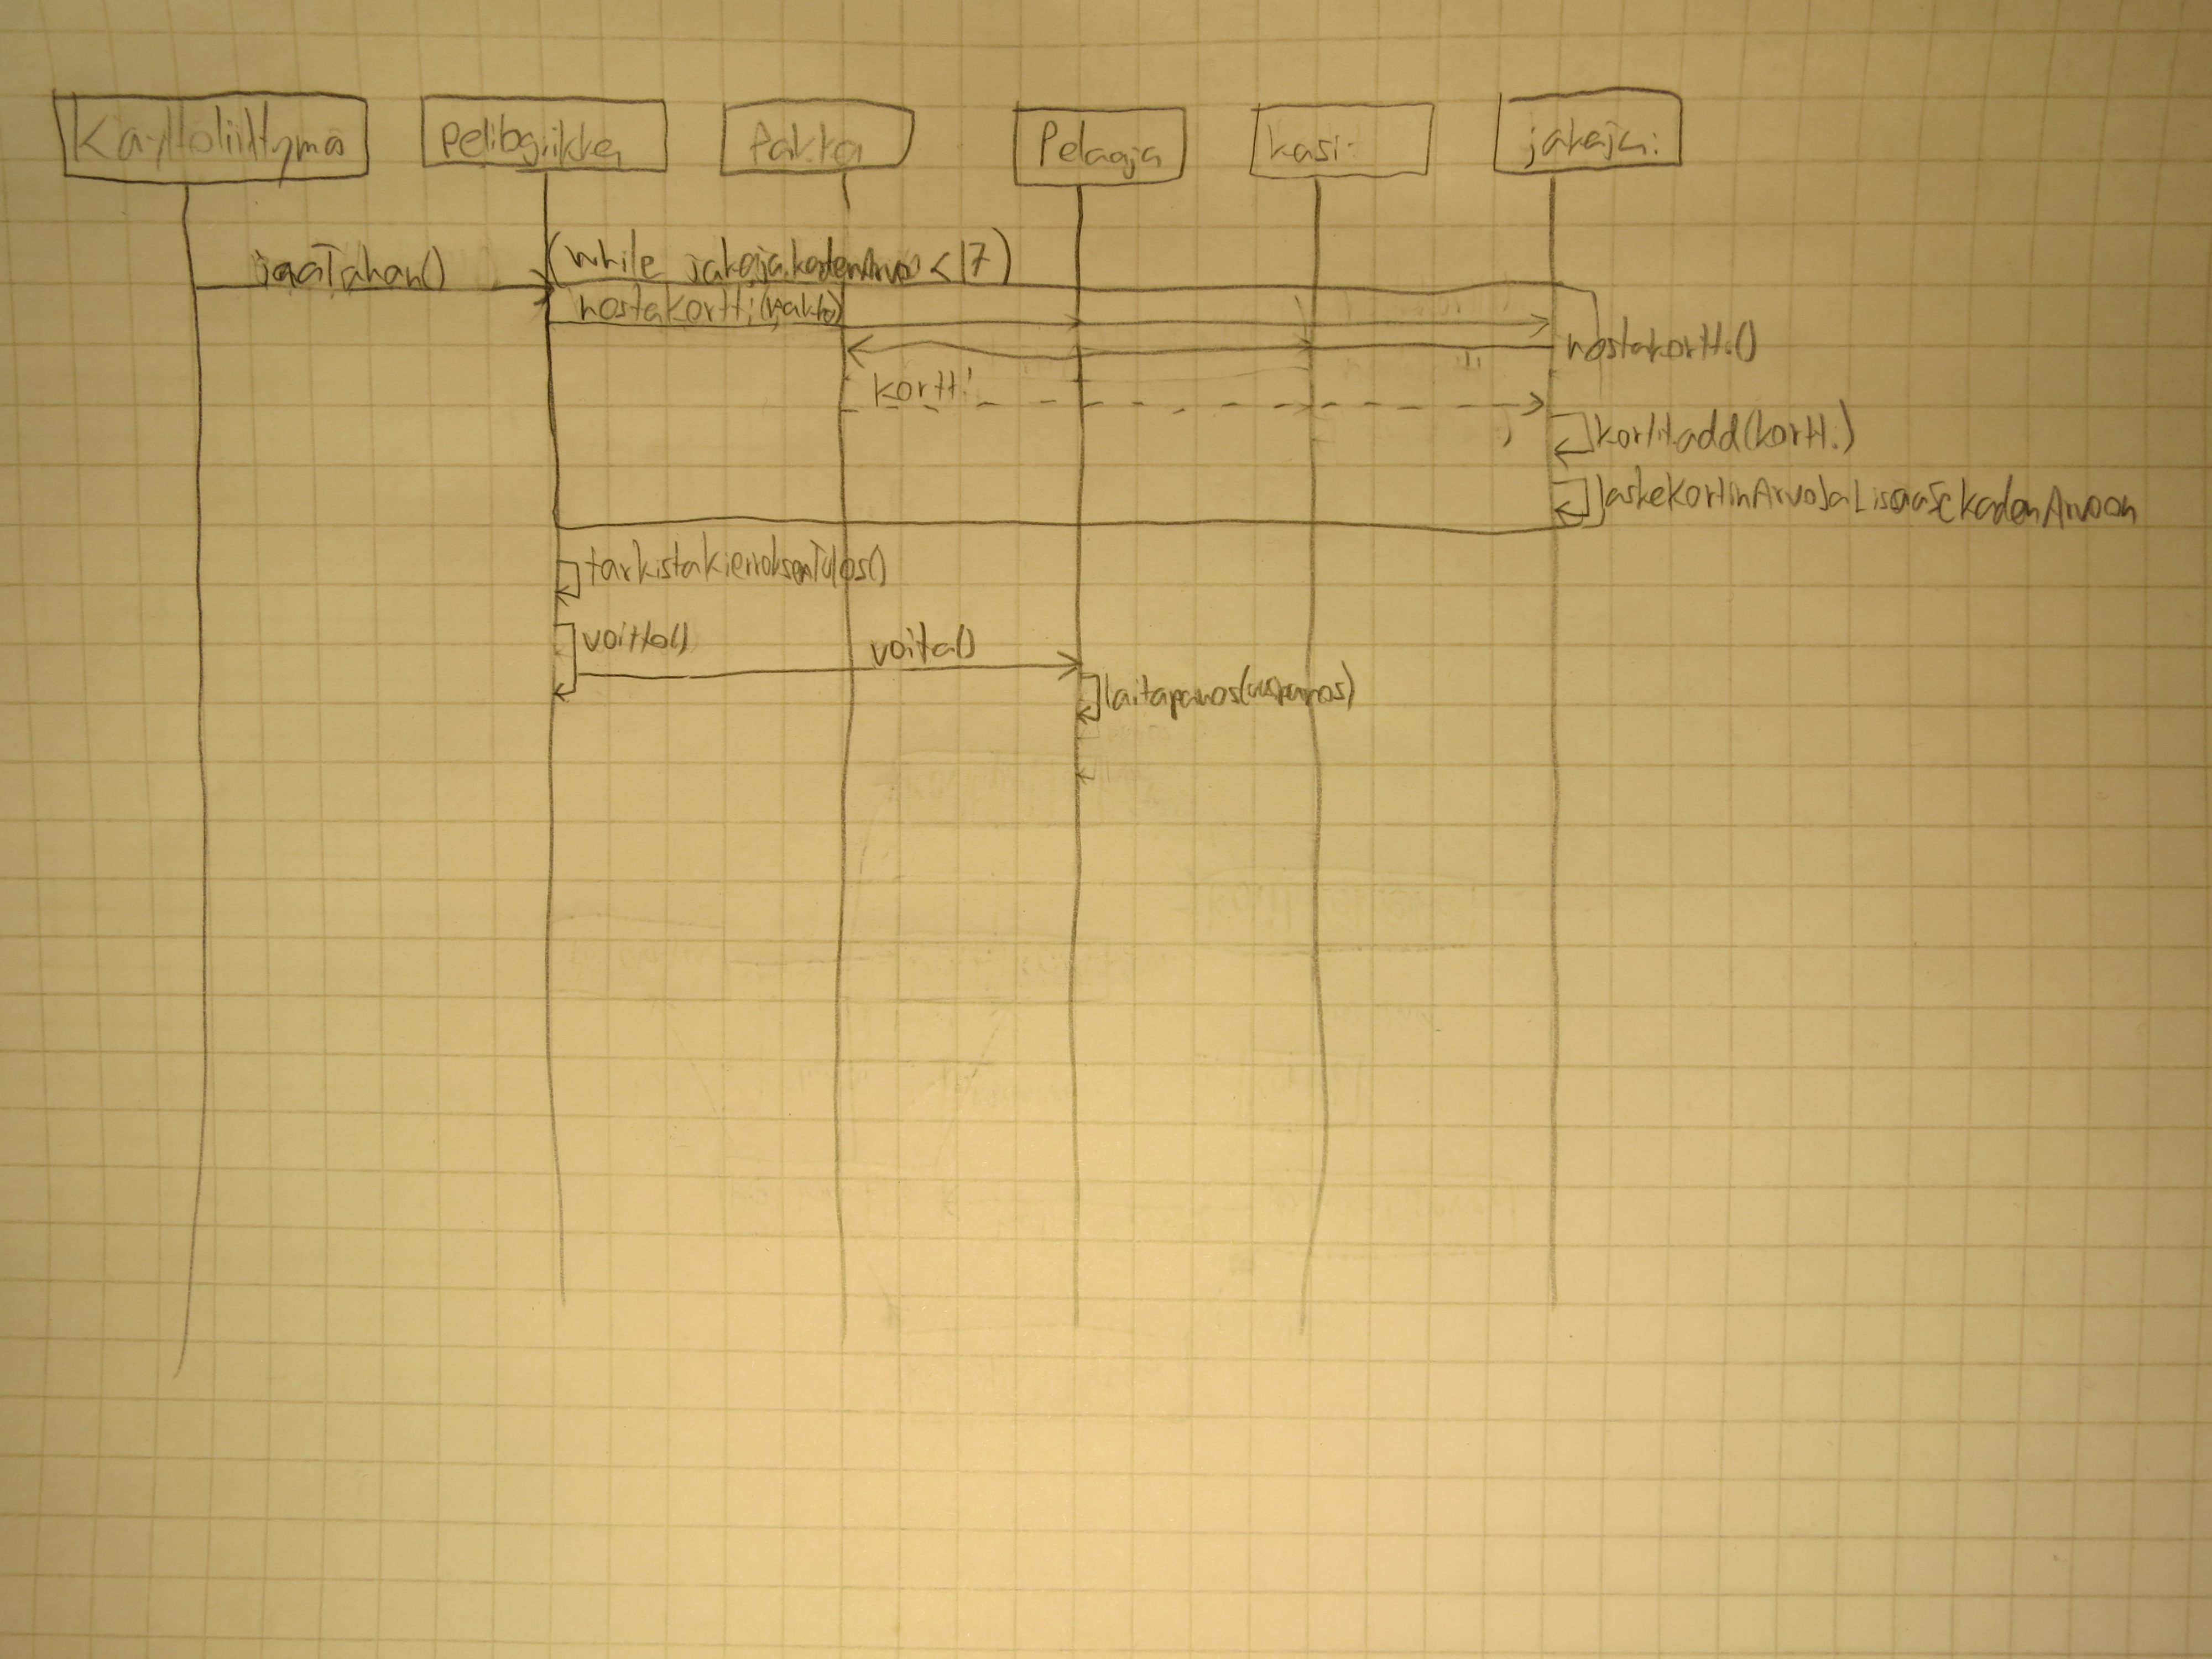 Käyttöliittymä
Pelilogiikka
Pakka
Pelaaja
kasi:
jakaja:
jaaTahan()
(while jakaja.kadenArvo < 17)
nostakortti(pakka)
nostakortti()
kortti
kortit.add(kortti)
laskeKortinArvoJaLisaaSeKadenArvoon
tarkistakierroksenTulos()
voitto()
voita()
laitapanos(uusipanos)